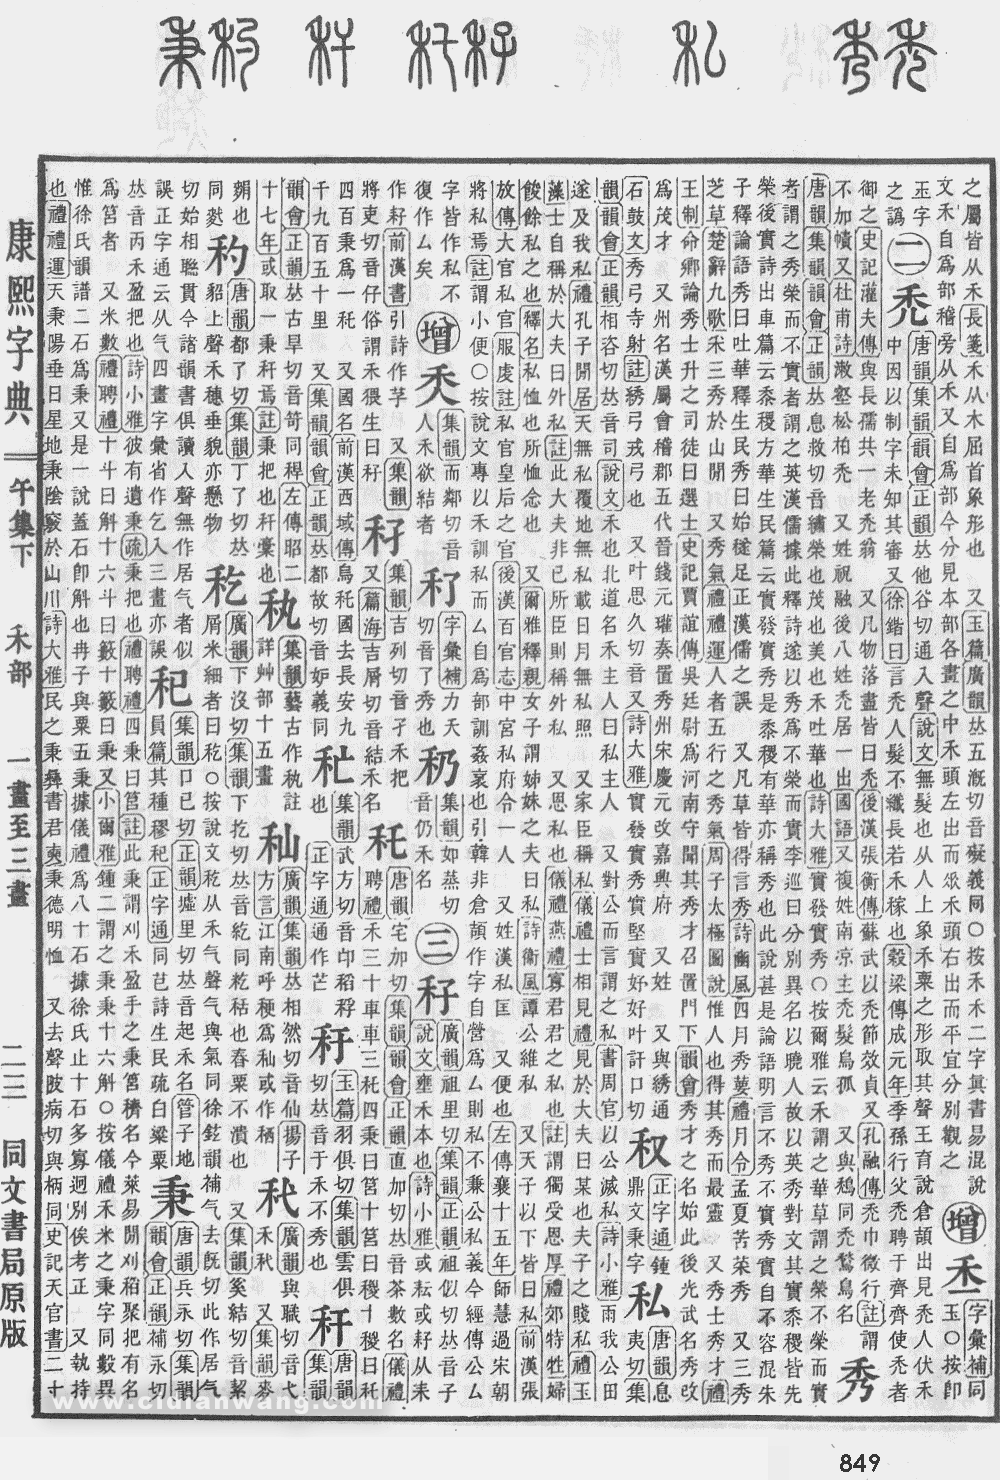 秀禿 私 秄秅 秆 秎秉
之屬皆从禾長箋禾从木屈首象形也 又玉篇廣韻 五漑切音礙義同〇按禾禾二字眞書易混說
文禾自爲部稽旁从禾又自爲部今分見本部各畫之中禾頭左出而禾頭右出而平宜分別觀之 增 禾 字彙補同
玉字之譌 二 禿 唐韻集韻韻會正韻𠀤他谷切通入聲說文無髮也从人上象禾粟之形取其聲王育說倉頡出見禿人伏禾
中因以制字未知其審又徐鍇曰言禿人髮不纖長若禾稼也穀梁傳成元年季孫行父禿聘于齊齊使禿者
御之史記灌夫傳與長孺共一老禿翁 又凡物落盡皆曰禿後漢張衡傳蘇武以禿節效貞又孔融傳禿巾微行註謂
不加幘又杜甫詩 松柏禿 又姓祝融後八姓禿居一出國語又複姓南涼主禿髮烏孤 又與鵚同禿鶖鳥名 秀
唐韻集韻韻會正韻𠀤息救切音繡榮也茂也美也禾吐華也詩大雅實發實秀〇按爾雅云禾謂之華草謂之榮不榮而實
者謂之秀榮而不實者謂之英漢儒據此釋詩遂以秀爲不榮而實李巡曰分別異名以曉人故以英秀對文其實黍稷皆先
榮後實詩出車篇云黍稷方華生民篇云實發實秀是黍稷有華亦稱秀也此說甚是論語明言不秀不實秀實自不容混朱
子釋論語秀曰吐華釋生民秀曰始穟足正漢儒之誤 又凡草皆得言秀詩豳風四月秀葽禮月令孟夏苦菜秀 又三秀
芝草楚辭九歌采三秀於山閒 又秀氣禮禮運人者五行之秀氣周子太極圖說惟人也得其秀而最靈 又秀士秀才禮
王制命鄉論秀士升之司徒曰選士史記賈誼傳吳廷尉爲河南守聞其秀才召置門下韻會秀才之名始此後光武名秀改
爲茂才 又州名漢屬會稽郡五代晉錢元瓘奏置秀州宋慶元改嘉興府 又姓 又與綉通 鼎文秉字 私 唐韻息
石鼓文秀弓寺射註綉弓戎弓也 又叶思久切音叟詩大雅實發實秀實堅實好好叶許口切 𥝢 正字通鍾 夷切集
韻韻會正韻相咨切𠀤音司說文禾也北道名禾主人曰私主人 又對公而言謂之私書周官以公滅私詩小雅雨我公田
遂及我私禮孔子閒居天無私覆地無私載日月無私照 又家臣稱私儀禮士相見禮見於大夫曰某也夫子之賤私禮玉
藻士自稱於大夫曰外私註此大夫非已所臣則稱外私 又恩私也儀禮燕禮寡君君之私也註謂獨受恩厚禮郊特牲婦
餕餘私之也釋名私恤也所恤念也 又爾雅釋親女子謂姊妹之夫曰私詩衛風譚公維私 又天子以下皆曰私前漢張
放傳大官私官服虔註私官皇后之官後漢百官志中宮私府令一人 又姓漢私匡 又便也左傳襄十五年師慧過宋朝
將私焉註謂小便〇按說文專以禾訓私而厶自爲部訓姦衺也引韓非倉頡作字自營爲厶則私不兼公私義今經傳公厶
字皆作私不復作厶矣 增 𥝋 集韻而鄰切音人禾欲結者 𥝤 字彙補力天切音了秀也 𥝥 集韻如蒸切音仍禾名 三 秄 廣韻祖里切集韻正韻祖似切𠀤音子說文壅禾本也詩小雅或耘或耔从耒
作耔前漢書引詩作芓 又集韻將吏切音仔俗謂禾猥生曰秄 䄦 集韻吉列切音孑禾把又篇海吉屑切音結禾名 秅 唐韻宅加切集韻韻會正韻直加切𠀤音茶數名儀禮聘禮禾三十車車三秅四秉曰筥十筥曰稷十稷曰秅
四百秉爲一秅 又國名前漢西域傳烏秅國去長安九千九百五十里 又集韻韻會正韻𠀤都故切音妒義同 𥝕 集韻武方切音卬稻稃也 正字通通作芒 䄨 玉篇羽俱切集韻雲俱切𠀤音于禾不秀也 秆 唐韻集韻
韻會正韻𠀤古旱切音笴同稈左傳昭二十七年或取一秉秆焉註秉把也秆稾也 秇 集韻藝古作秇註詳艸部十五畫 秈 廣韻集韻𠀤相然切音仙揚子方言江南呼稉爲秈或作栖 𥝖 廣韻與職切音弋禾秇 又集韻
同麨 秎 唐韻都了切集韻丁了切𠀤貂上聲禾穗垂貌亦懸物 秔 廣韻下沒切集韻下扢切𠀤音紇同籺秳也舂粟不潰也 又集韻奚結切音絜
切始相聮貫今諸韻書俱讀入聲無作居气者似誤正字通云从气四畫字彙省作乞入三畫亦誤 䄫 集韻口已切正韻墟里切𠀤音起禾名管子地員篇其種穋䄫正字通同芑詩生民疏白粱粟 秉 唐韻兵永切集韻韻會正韻補永切
𠀤音丙禾盈把也詩小雅彼有遺秉疏秉把也禮聘禮四秉曰筥註此秉謂刈禾盈手之秉筥穧名今萊易閒刈稻聚把有名
爲筥者 又米數禮聘禮十斗曰斛十六斗曰籔十籔曰秉又小爾雅鍾二謂之秉秉十六斛〇按儀禮禾米之秉字同數異
惟徐氏韻譜二石爲秉又是一說蓋石卽斛也冉子與粟五秉據儀禮爲八十石據徐氏止十石多寡迥別俟考正 又執持
也禮禮運天秉陽垂日星地秉陰竅於山川詩大雅民之秉彝書君奭秉德明恤 又去聲陂病切與柄同史記天官書二十
康熙字典 午集下 禾部 一畫至三畫 二三 同文書局原版
www.cidianwang.com
849